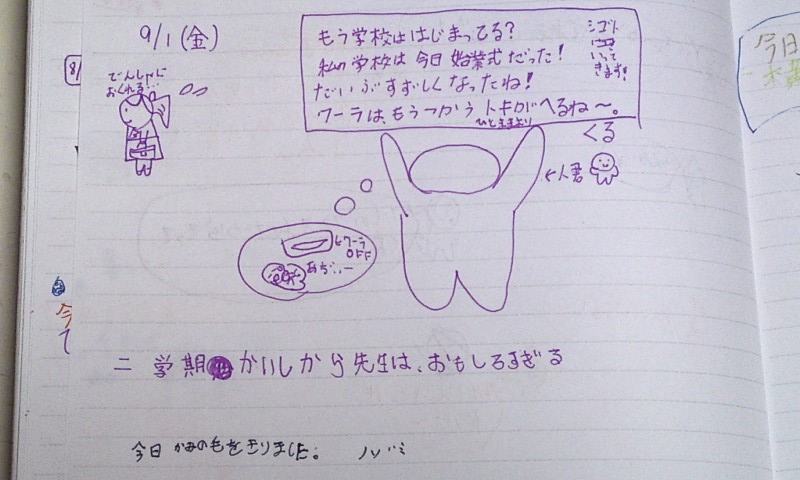 9/1(金)
でんしゃに
おくれる…
もう学校ははじまってる?
私の学校は今日始業式だった!
だいぶすずしくなったね!
クーラは、もうつかうトキがへるね〜。
ひとまずより
シゴト
に
いって
きます!
くる
←人君
←クーラ
OFF
あぢぃ…
二学期かいしから先生は、おもしろすぎる
今日かみの毛をきりました。
8/
今
て
今日